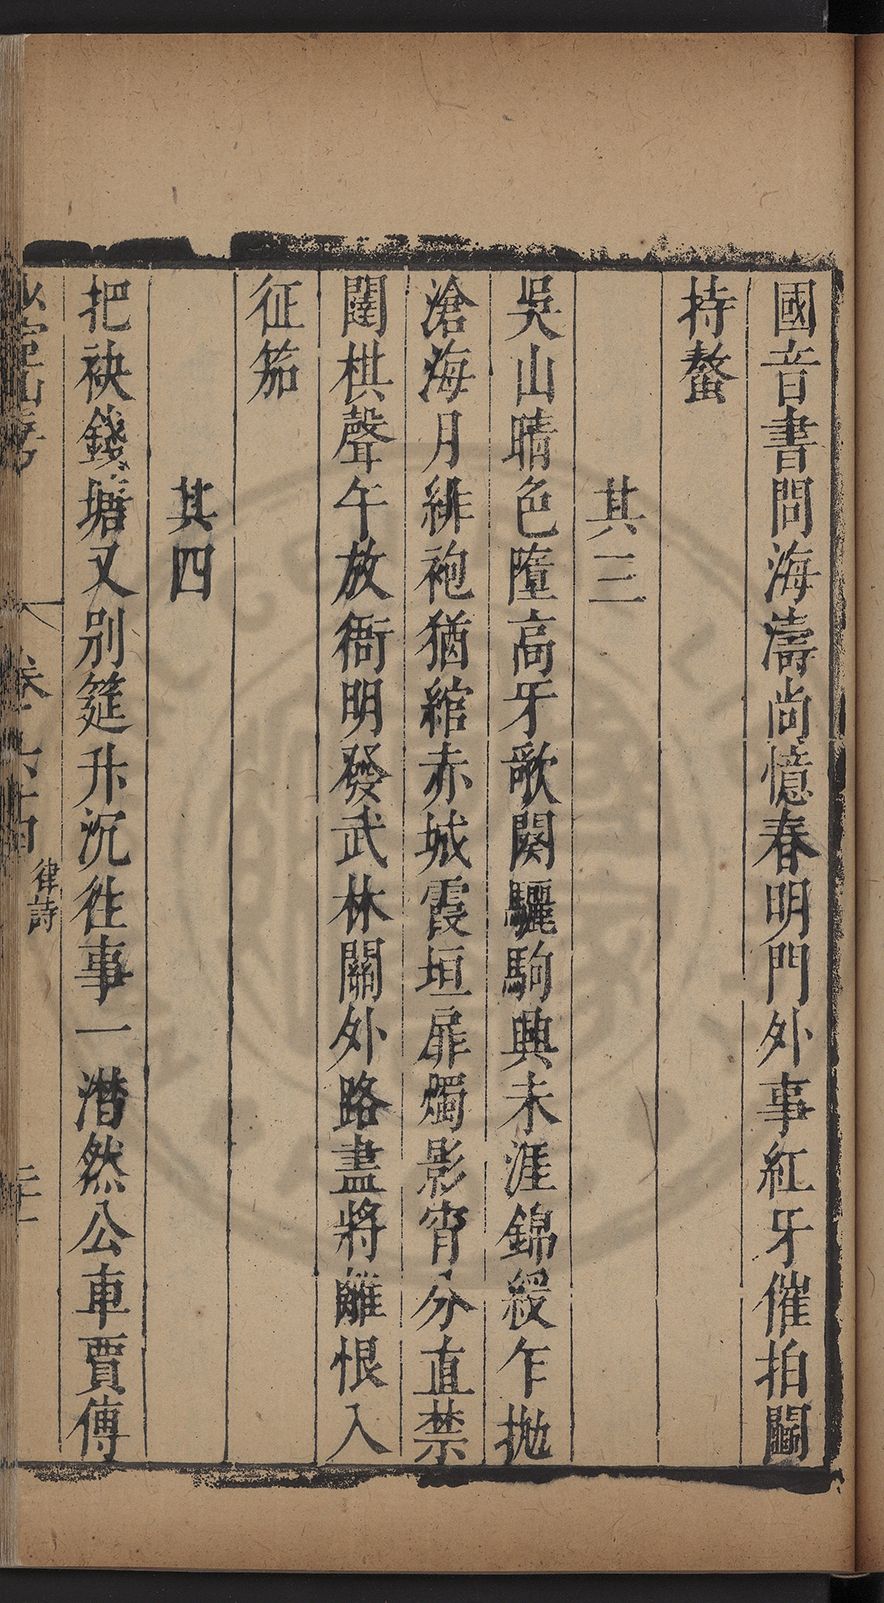 國音書問海濤尚憶春明門外事紅牙催拍鬭
持螯
其三
吳山晴色墮高牙歌闋驪駒興未涯錦綬乍拋
滄海月緋袍猶綰赤城霞垣扉燭影宵分直禁
闈棋聲午放衙明發武林關外路盡將離恨入
征笳
其四
把袂錢塘又別筵升沉往事一潸然公車賈傅
卷之六十四
律詩